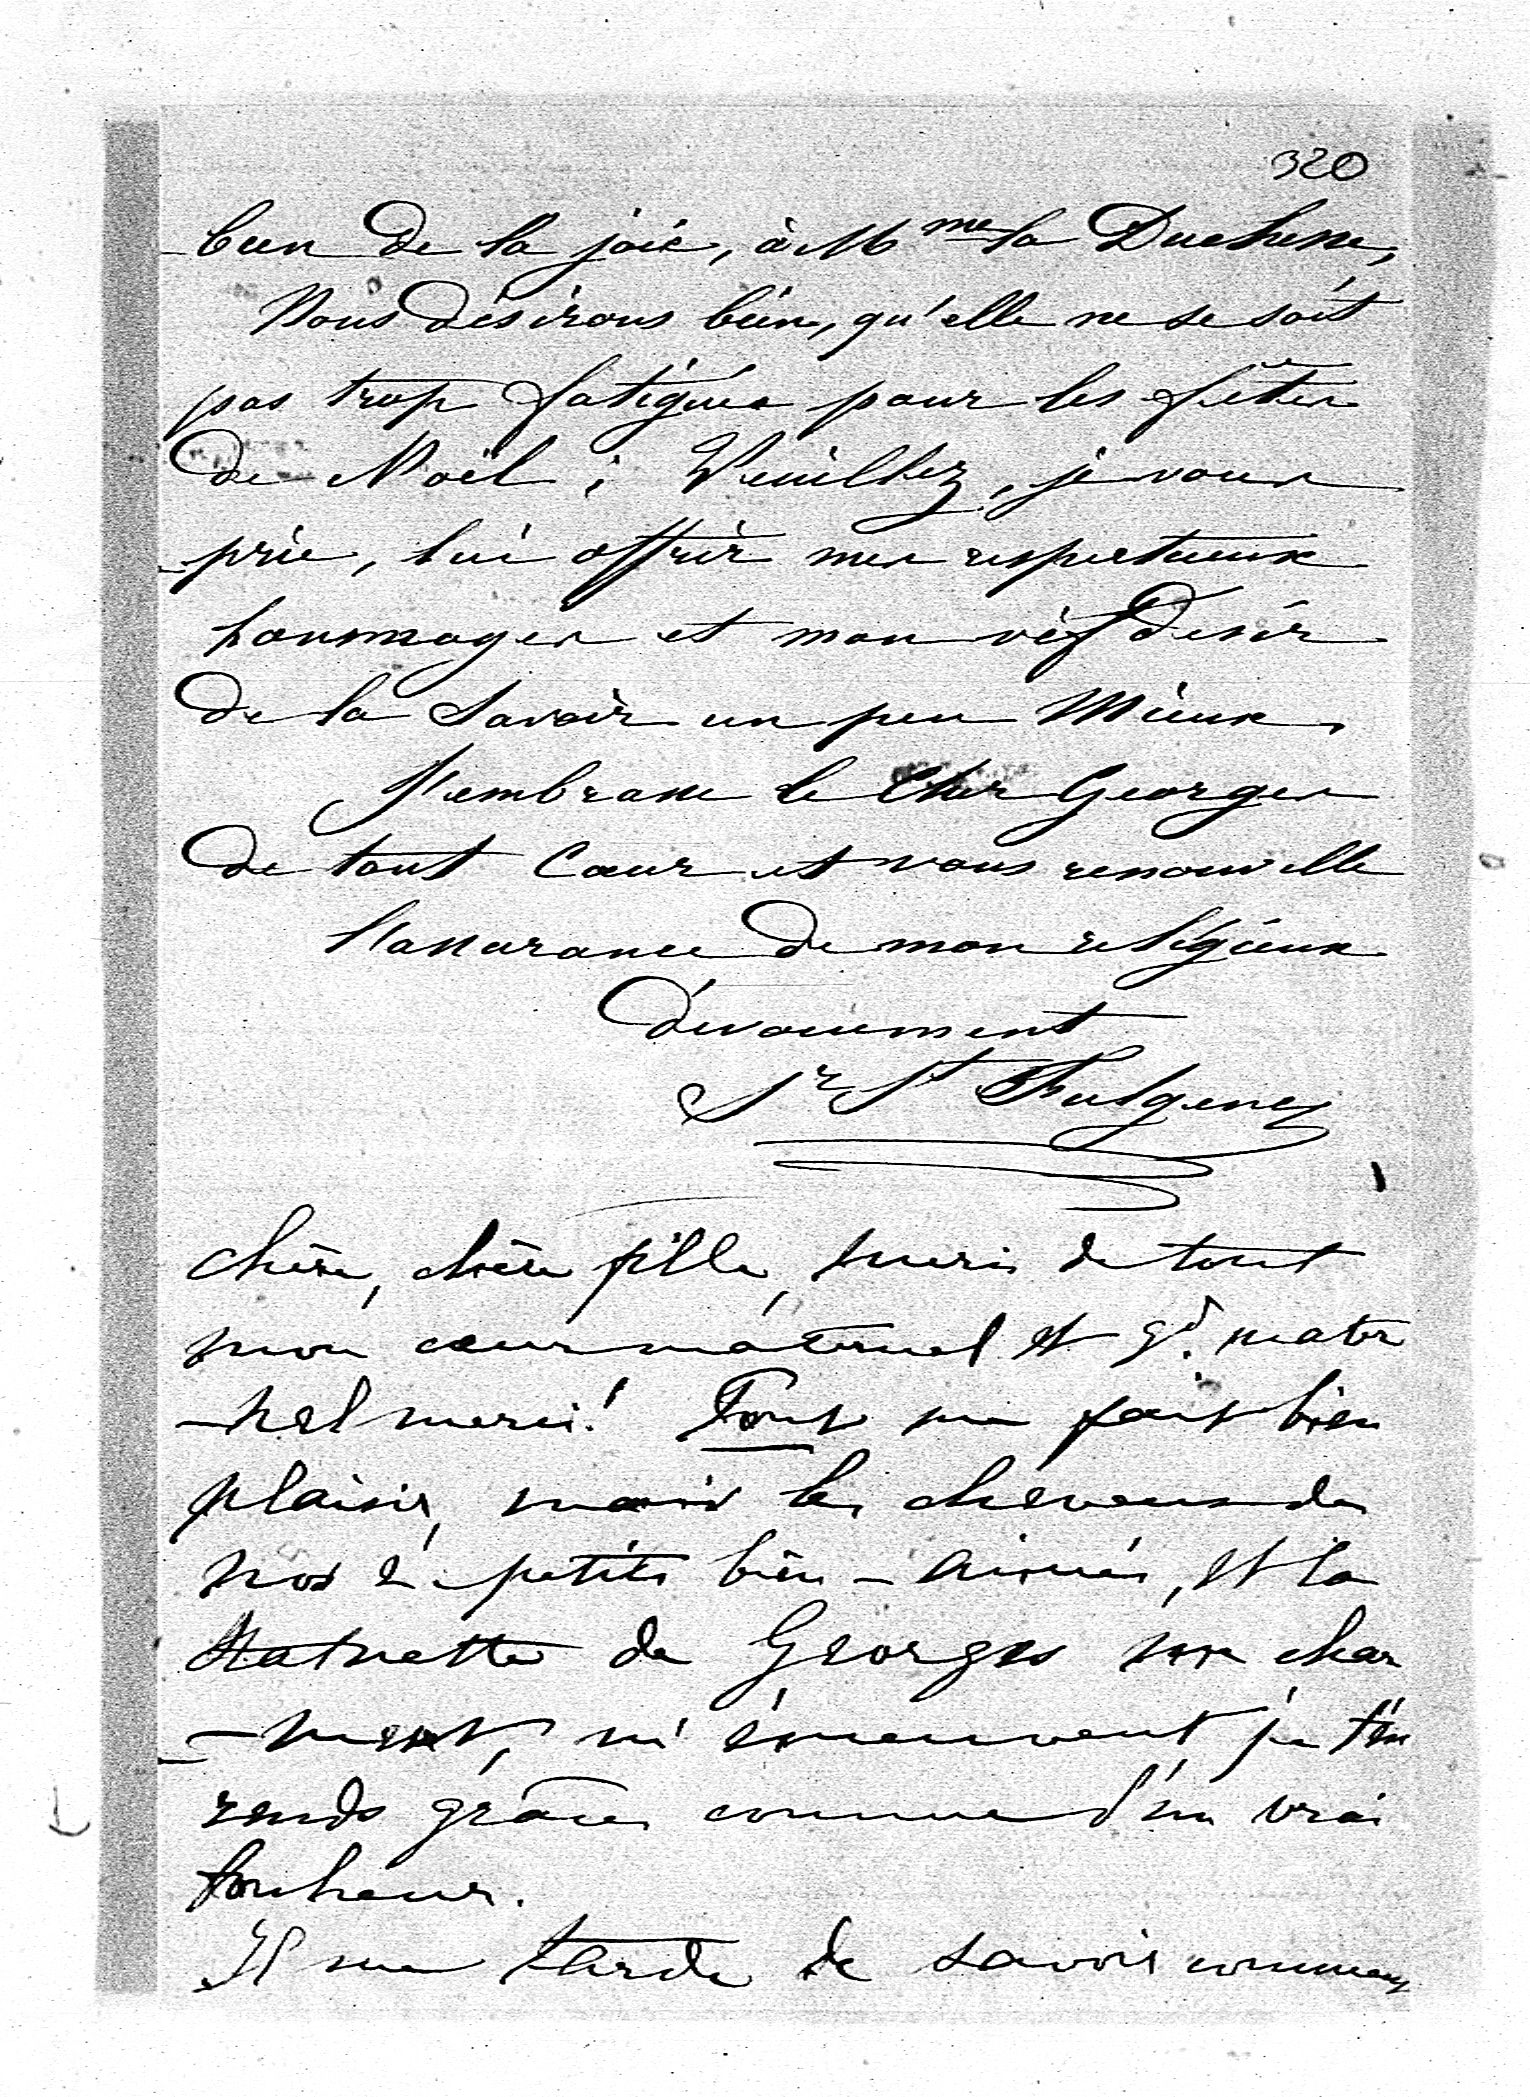 320
bien de la joie, à Mme la Duchesse,
Nous désirons bien, qu'elle ne se soit
pas trop fatiguée pour les fêtes
de Noël ; Veuillez, je vous
prie, lui offrir mes respectueux
hommages et mon vif désir
de la Savoir un peu Mieux.
J'embrasse le Cher Georges
de tout Cœur et vous renouvelle
l'assurance de mon religieux
dévouement
Sr St Fulgence
chère, chère fille, merci de tout
mon cœur maternel et gd. mater
-nel merci! Tout me fait bien
plaisir, mais les cheveux de
nos 2 petits bien-aimés, et la
statuette de Georges me char
-ment, m'émeuvent je t'en
rends grâces comme d'un vrai
bonheur.
Il me tarde de savoir comment